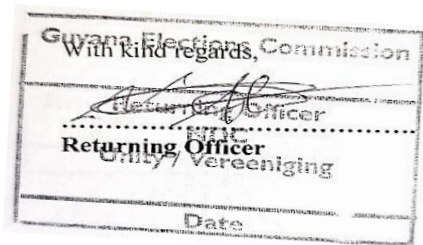 Guyana Elections Commission
With kind regards,
Returning Officer
NDC
Returning Officer
Unity / Vereeniging
Date